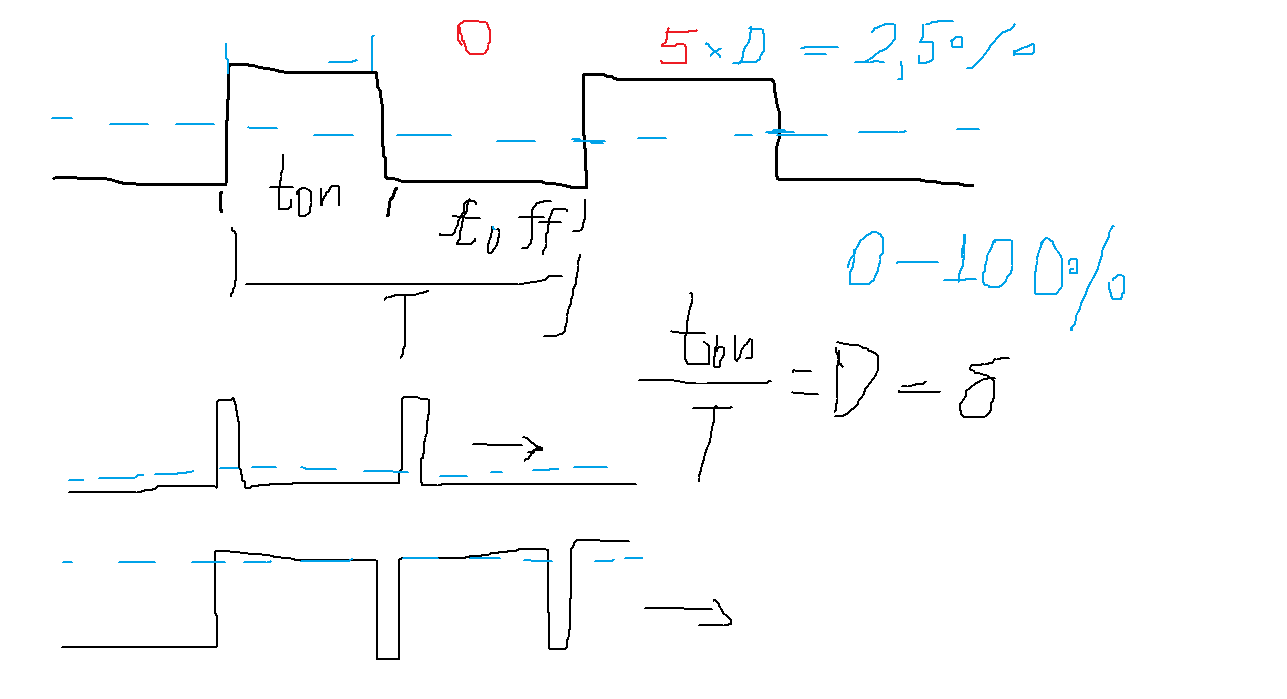 0
5 × D = 2,5%
ton
toff
T
0-100%
ton
T
= D = δ